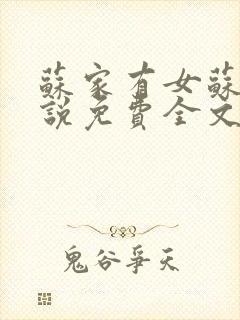 蘇家有女蘇
說免費全文
鬼谷爭天